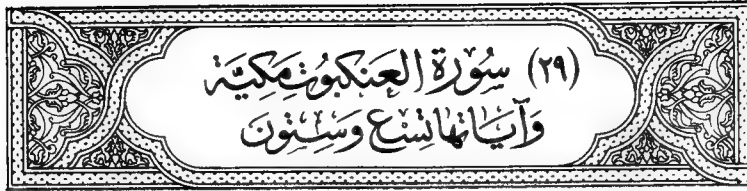 (٢٩) سُورَة العَنكبُوتِ مَكِيَّة
وَآيَاتهَا تِسْع وَسِتُّونَ